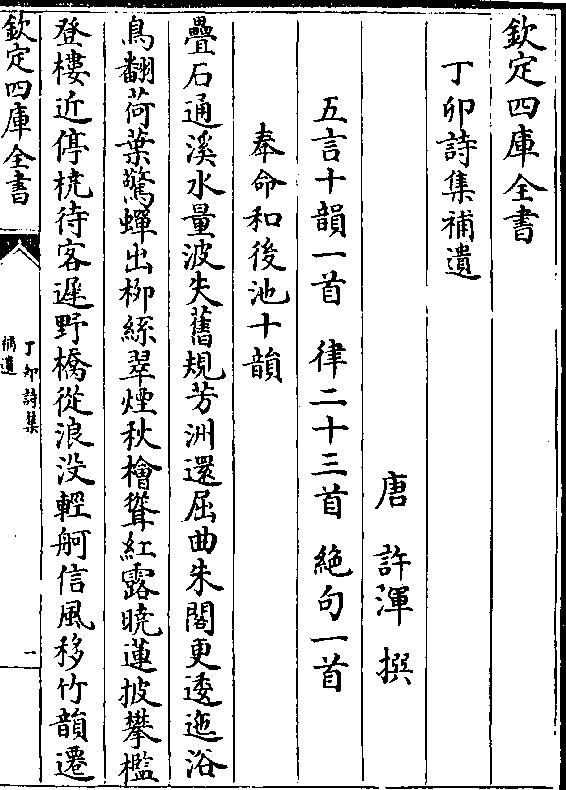 欽定四庫全書
丁卯詩集補遺
唐 許渾 撰
五言十韻一首 律二十三首 絶句一首
奉命和後池十韻
疊石通溪水量波失舊規芳洲還屈曲朱閣更逶迤浴
鳥翻荷葉驚蟬出柳絲翠煙秋檜聳紅露曉蓮披攀檻
登樓近停桡待客遲野橋從浪没輕舸信風移竹韻遷
欽定四庫全書
丁卯詩集
補遺
一